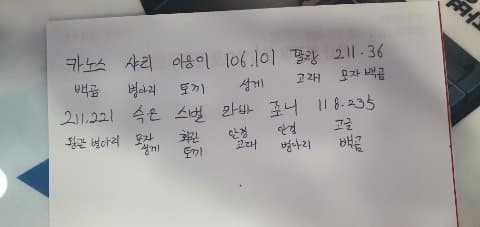 카노스 샤리 이응이 106.101 팔랑 211.36
백곰 병아리 토끼 성게 고래 모자 백곰
211.221 숙은 스벌 라바 죠니 118.235
왕관 병아리 모자 성게 화관 토끼 안경 고래 안경 병아리 고글 백곰